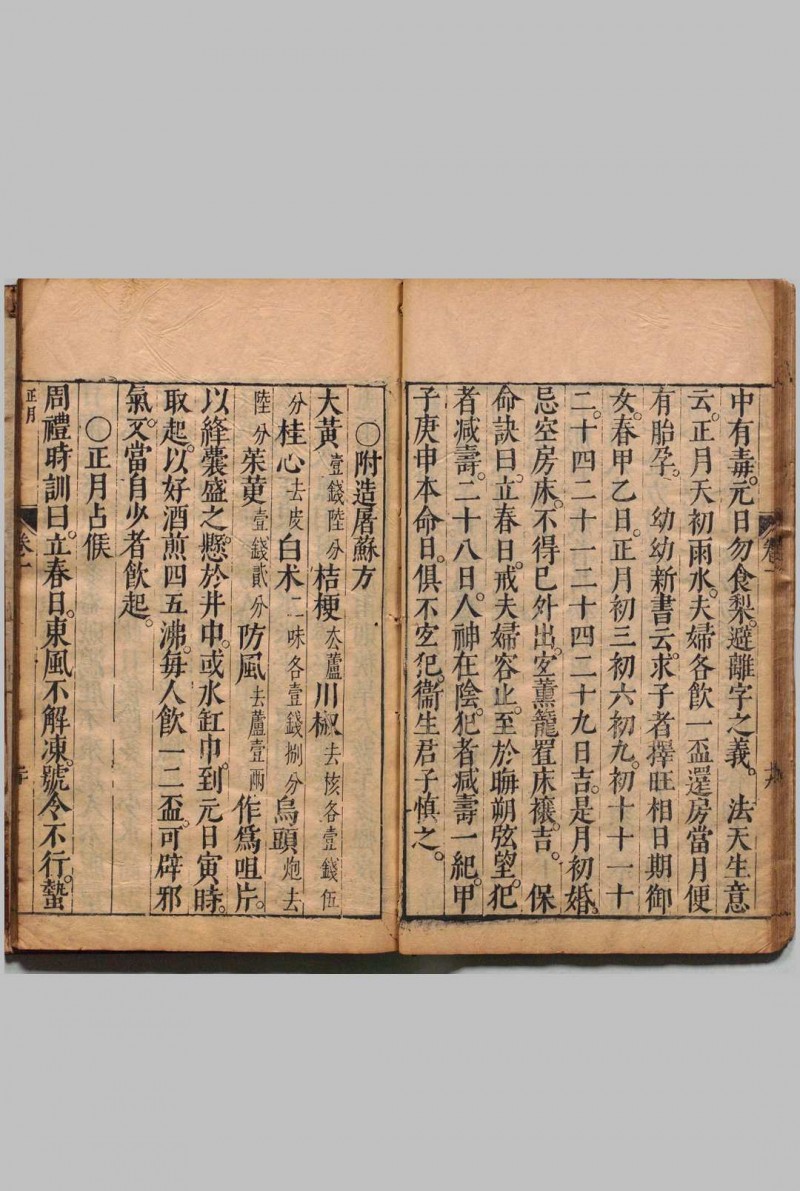 中有毒。元日勿食梨。避離字之義。　法天生意
云。正月天初雨水。夫婦各飲一盃。還房當月便
有胎孕。　幼幼新書云。求子者擇旺相日期御
女。春甲乙日。正月初三初六初九。初十十一十
二。十四二十一二十四二十九日吉。是月初婚。
忌空房床。不得已外出。宜薰籠置床禳吉。　保
命訣曰。立春日。戒夫婦容止。至於晦朔弦望。犯
者減壽。二十八日。人神在陰。犯者減壽一紀。甲
子庚申本命日。俱不宜犯。衞生君子慎之。
〇附造屠蘇方
大黃壹錢陸分桔梗去蘆川椒去核各壹錢伍
分桂心去皮白朮二味各壹錢捌分烏頭炮去
陸分茱萸壹錢貳分防風去蘆壹兩作爲咀片。
以絳囊盛之。懸於井中。或水缸中。到元日寅時。
取起。以好酒煎四五沸。每人飲一二盃。可辟邪
氣。又當自少者飲起。
〇正月占候
周禮時訓曰。立春日。東風不解凍。號令不行。蟄
正月
卷一